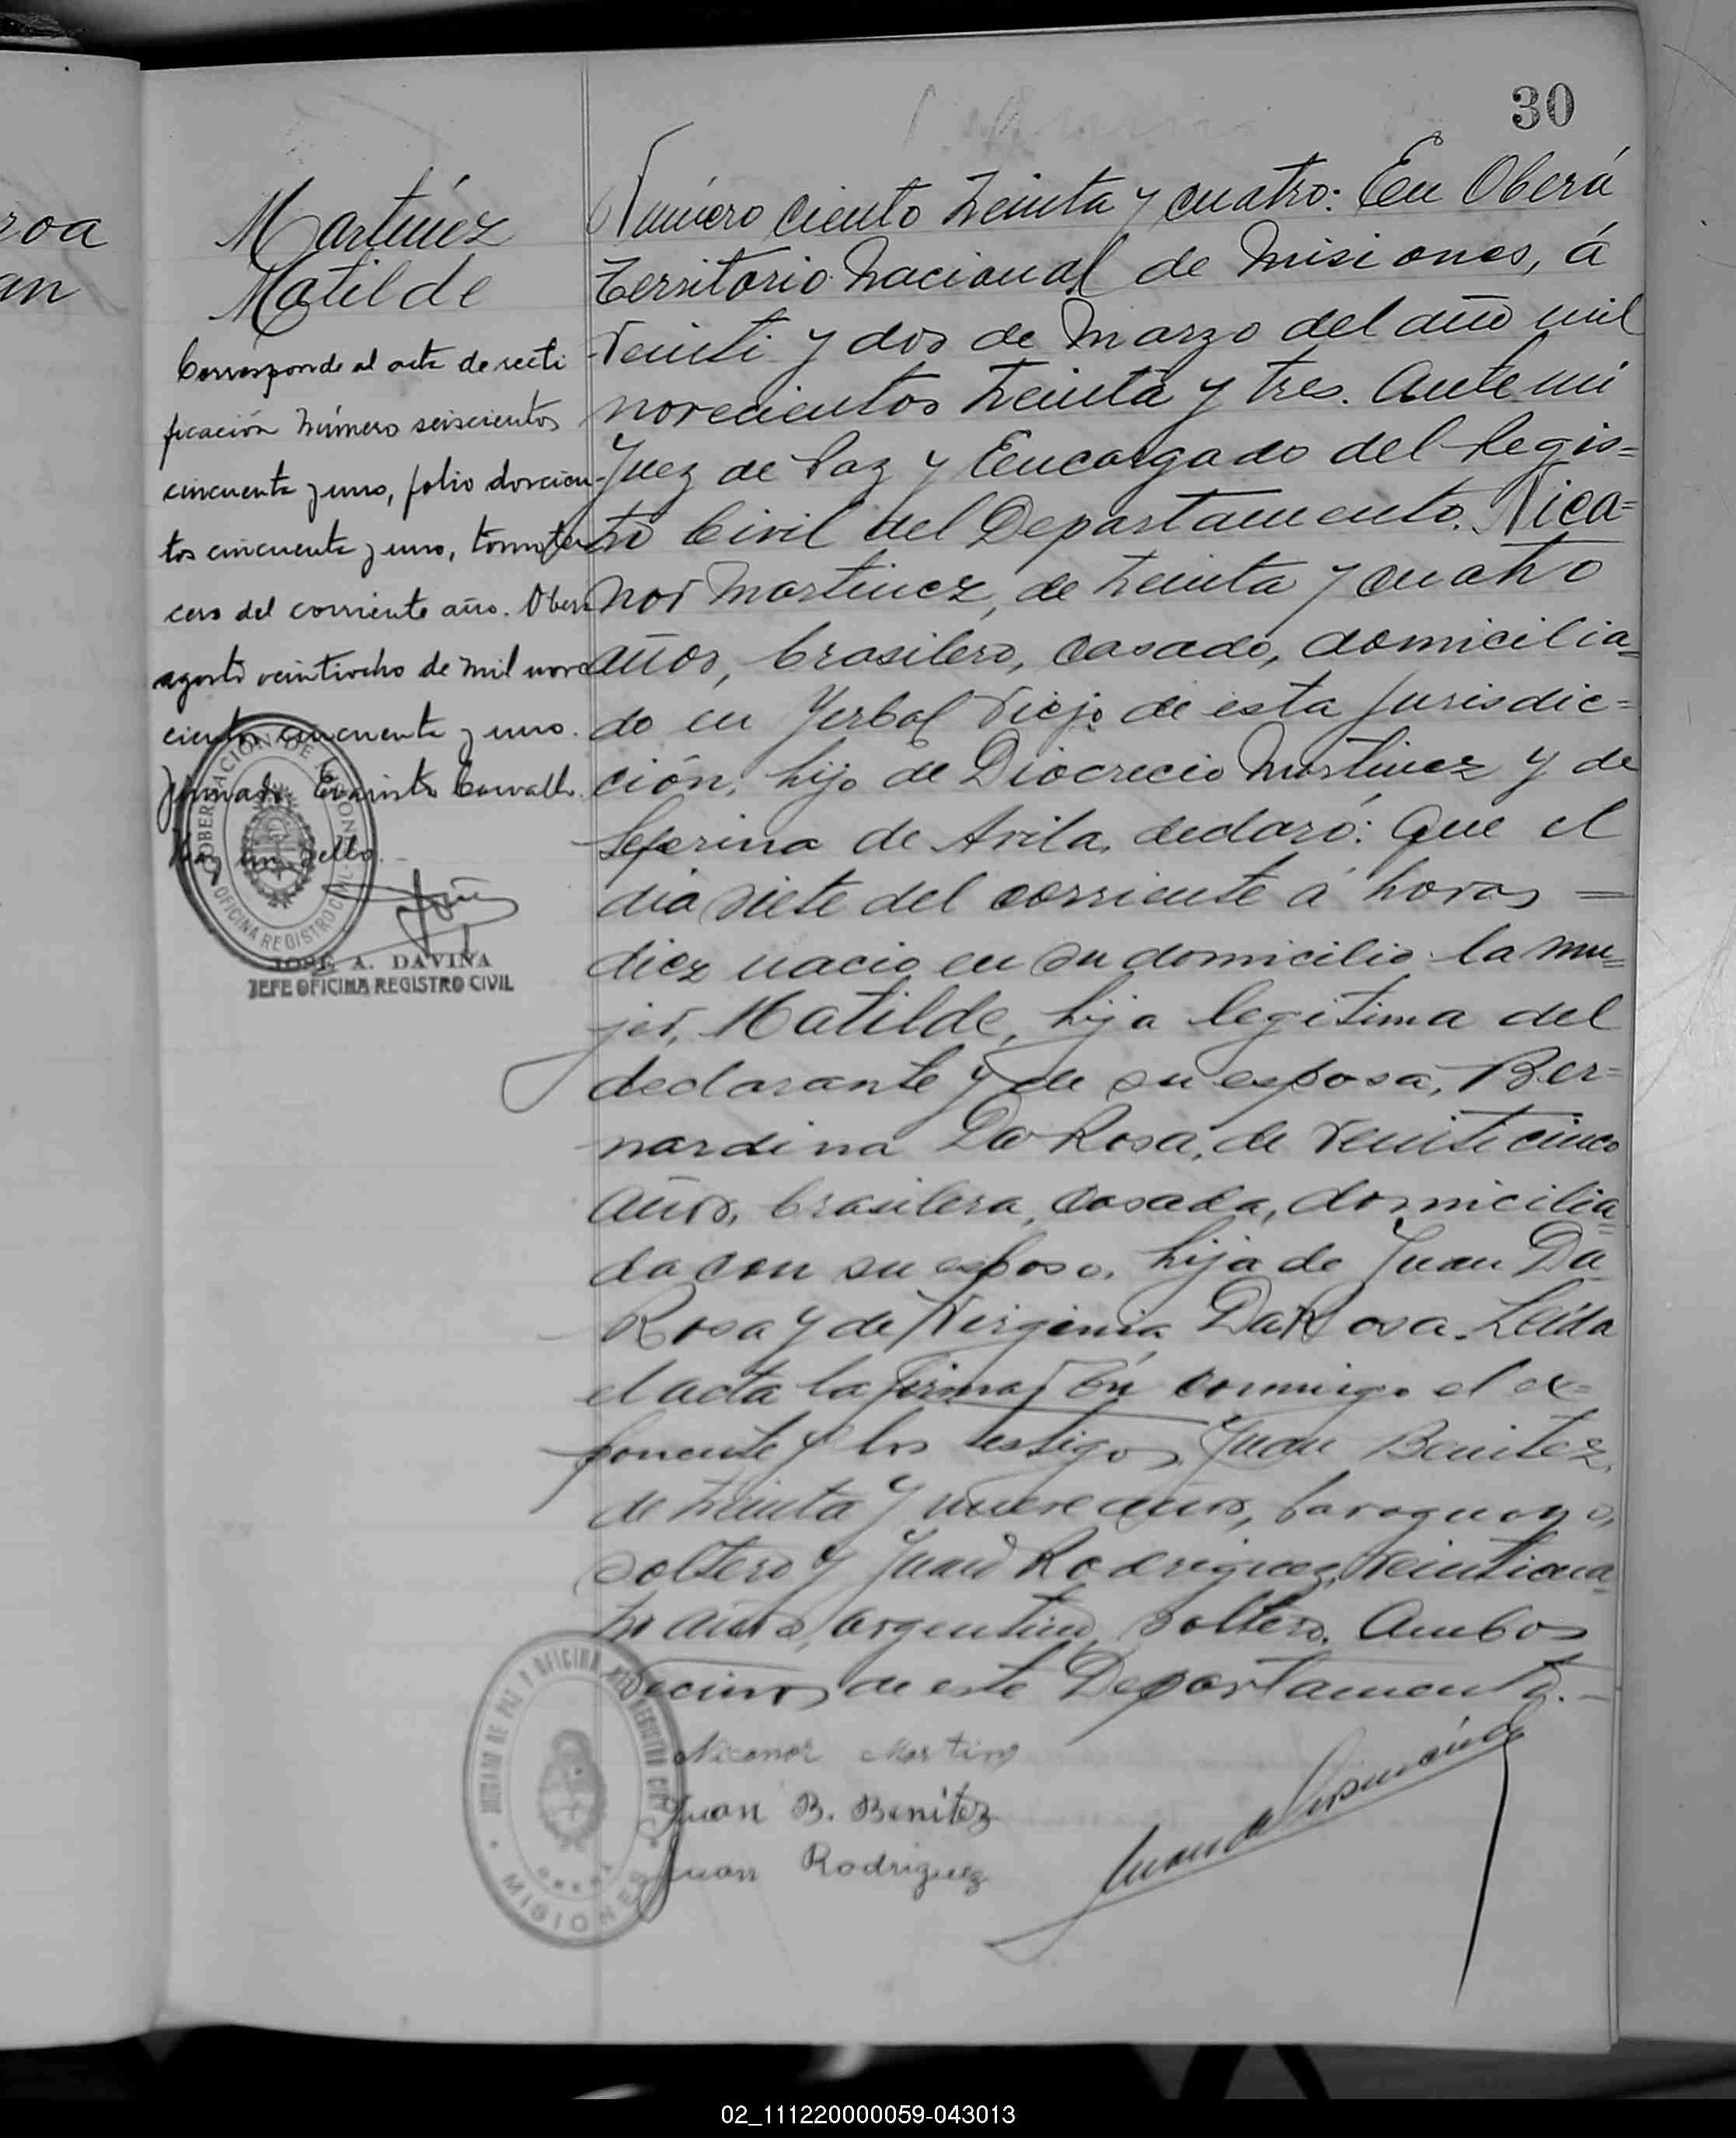 30
roa
an
Martínez
Matilde
Corresponde al acta de recti
ficación número seiscientos
cincuenta y uno, folio doscien-
tos cincuenta y uno, tomo ter
cero del corriente año. Oberá
agosto veintiocho de mil nove
cientos cincuenta y uno.
firmado Evaristo Carvallo.
Hay un sello.
GOBERNACION DE MISIONES
OFICINA REGISTRO CIVIL
JOSE A. DAVIÑA
JEFE OFICINA REGISTRO CIVIL
Número ciento treinta y cuatro: En Oberá
Territorio Nacional de Misiones, á
veinti y dos de Marzo del año mil
novecientos treinta y tres. Ante mi
Juez de Paz y Encargado del Regis=
tro Civil del Departamento. Nica=
nor Martinez, de treinta y cuatro
años, brasilero, casado, domicilia=
do en Yerbal Viejo de esta Jurisdic=
ción, hijo de Diocrecio Martinez y de
Seferina de Avila, declaró: Que el
dia siete del corriente á horas =
diez nacio en su domicilio la mu=
jer, Matilde, hija legitima del
declarante y de su esposa, Ber=
nardina Da Rosa, de veinticinco
años, brasilera, casada, domicilia=
da con su esposo, hija de Juan Da
Rosa y de Virginia Da Rosa. Leida
el acta la firmarón conmigo el ex=
ponente y los testigos Juan Benitez,
de treinta y nueve años, paraguayo,
soltero y Juan Rodriguez, veinticua=
tro años, argentino, soltero. Ambos
vecinos de este Departamento.-
JUZGADO DE PAZ Y OFICINA DEL REGISTRO CIVIL
OBERA
MISIONES
Nicanor Martins
Juan B. Benítez
Juan Rodriguez
02_111220000059-043013